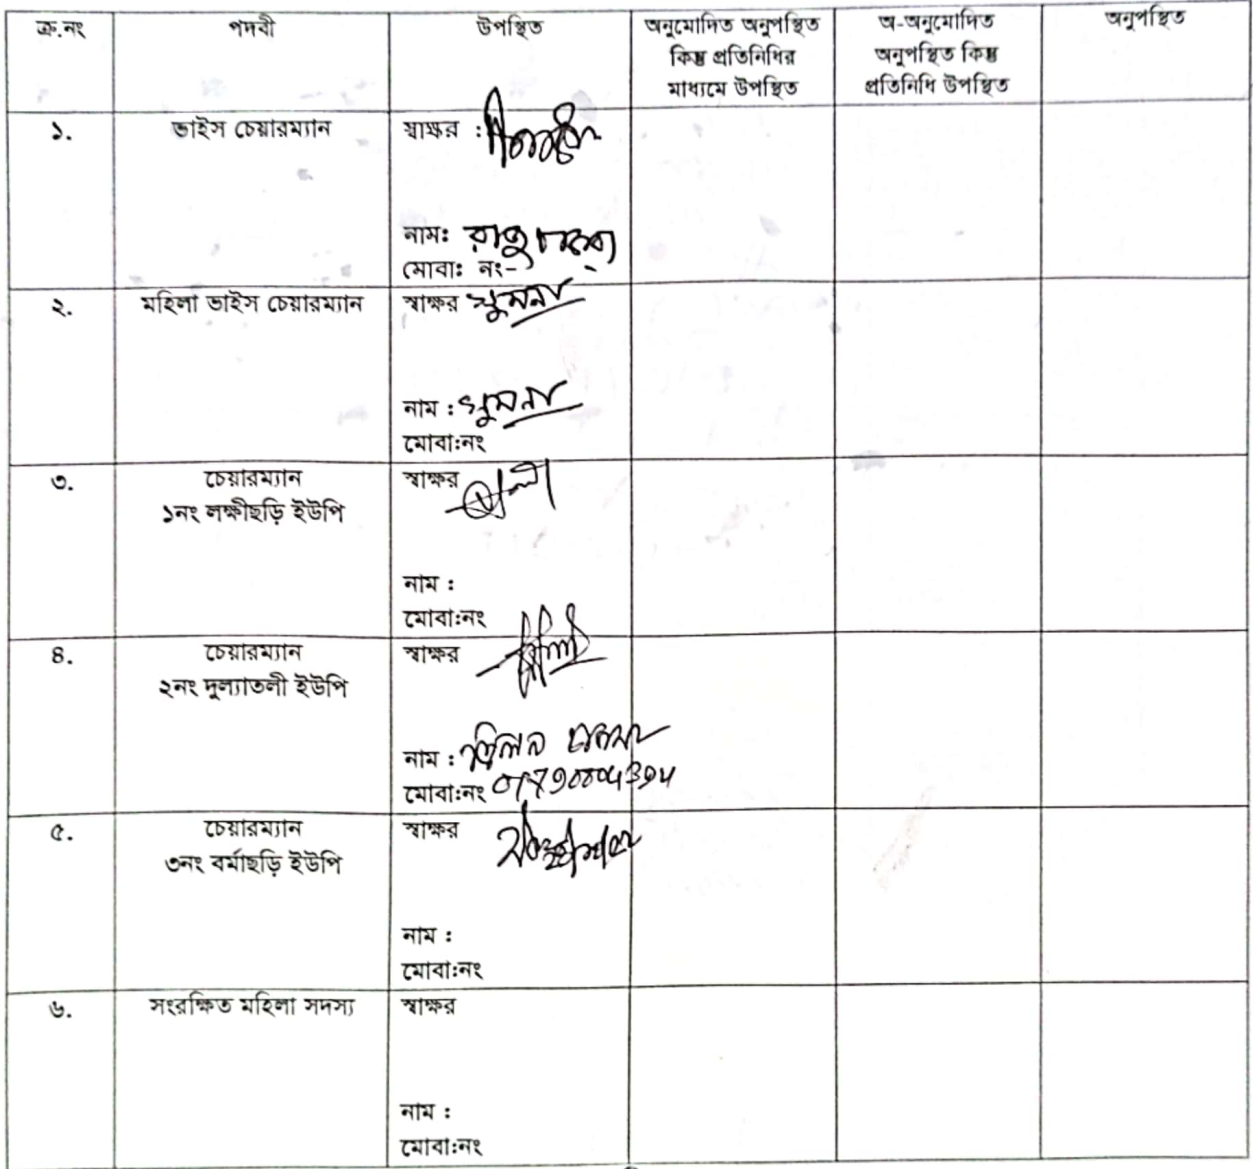 ক্র.নং পদবী উপস্থিত অনুমোদিত অনুপস্থিত কিন্তু প্রতিনিধির মাধ্যমে উপস্থিত অ-অনুমোদিত অনুপস্থিত কিন্তু প্রতিনিধি উপস্থিত অনুপস্থিত
১. ভাইস চেয়ারম্যান স্বাক্ষর :
নাম:
মোবা: নং-
২. মহিলা ভাইস চেয়ারম্যান স্বাক্ষর সুমনা
নাম : সুমনা
মোবা:নং
৩. চেয়ারম্যান স্বাক্ষর
১নং লক্ষীছড়ি ইউপি
নাম :
মোবা:নং
৪. চেয়ারম্যান স্বাক্ষর
২নং দুল্যাতলী ইউপি
নাম : ত্রিলন চাকমা
মোবা:নং
৫. চেয়ারম্যান স্বাক্ষর
৩নং বর্মাছড়ি ইউপি
নাম :
মোবা:নং
৬. সংরক্ষিত মহিলা সদস্য স্বাক্ষর
নাম :
মোবা:নং